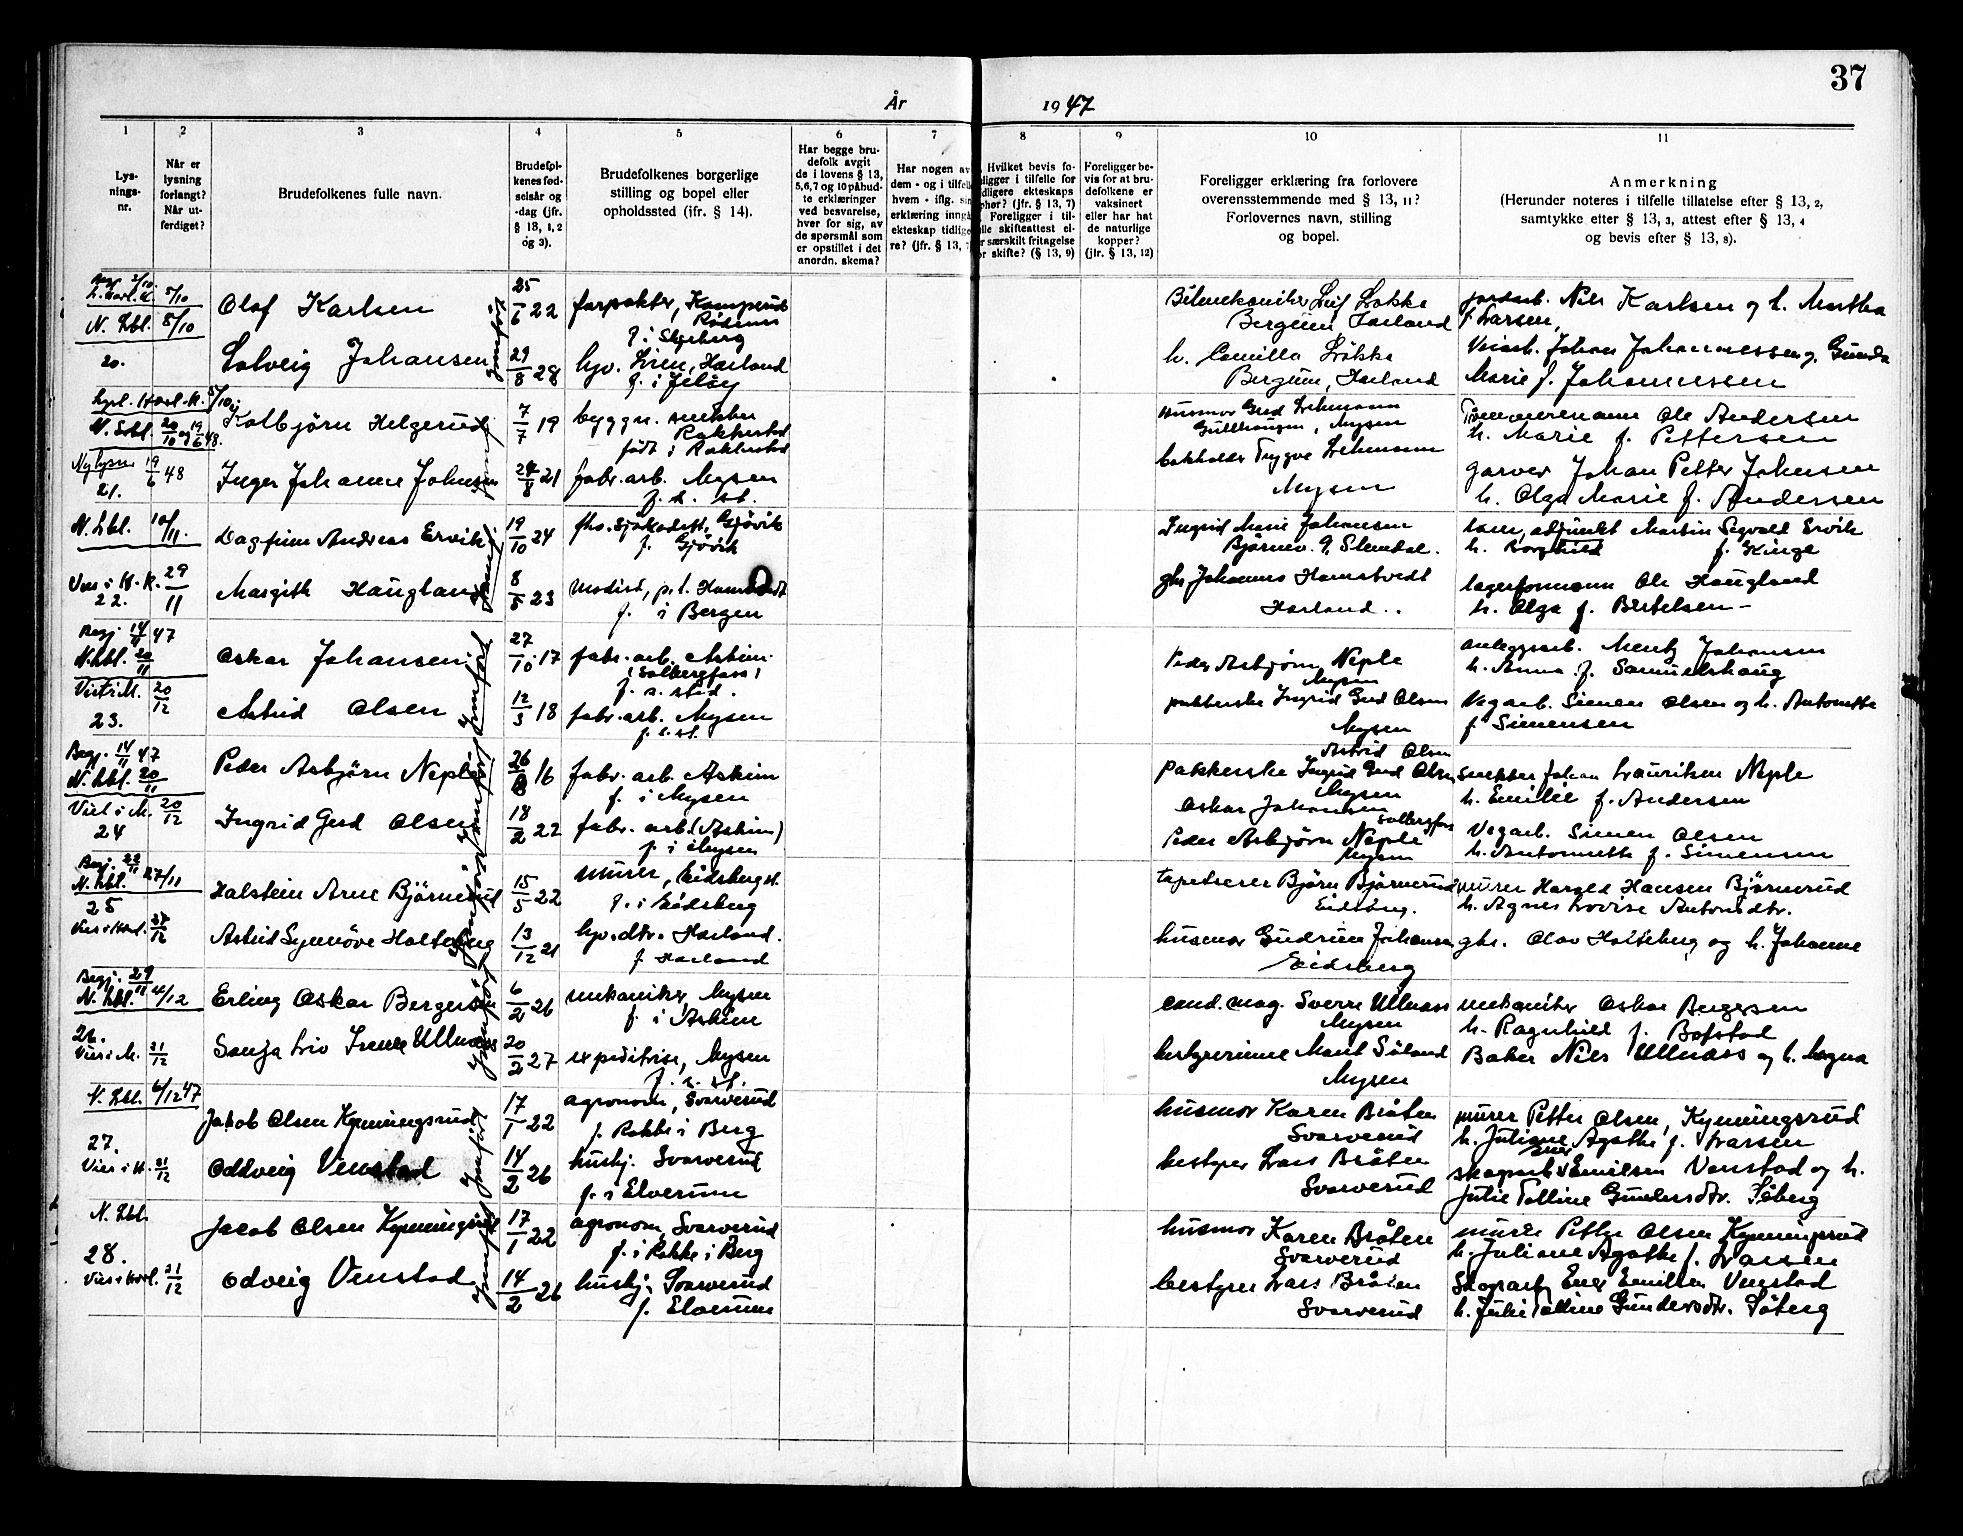 37
År 1947
1 2 3 4 5 6 7 8 9 10 11
Lys-
nings-
nr.
Når er
lysning
forlangt?
Når ut-
ferdiget?
Brudefolkenes fulle navn.
Brudefol-
kenes fød-
selsår og
-dag (jfr.
§ 13, 1, 2
og 3).
Brudefolkenes borgerlige
stilling og bopel eller
opholdssted (ifr. § 14).
Har begge bru-
defolk avgit
de i lovens § 13,
5,6,7 og 10 påbud-
te erklæringer
ved besvarelse,
hver for sig, av
de spørsmål som
er opstillet i det
anordn. skema?
Har nogen av
dem - og i tilfelle
hvem - iflg. sin
erklæring inngå
ekteskap tidlige
re? (jfr. § 13, 7
Hvilket bevis fo-
ligger i tilfelle for
dligere ekteskaps
phør? (jfr. § 13, 7)
Foreligger i til-
lle skifteattest el-
r særskilt fritagelse
or skifte? (§ 13, 9)
Foreligger be-
vis for at bru-
defolkene er
vaksinert
eller har hat
de naturlige
kopper?
(jfr. § 13, 12)
Foreligger erklæring fra forlovere
overensstemmende med § 13, 11?
Forlovernes navn, stilling
og bopel.
Anmerkning
(Herunder noteres i tilfelle tillatelse efter § 13, 2,
samtykke efter § 13, 3, attest efter § 13, 4
og bevis efter § 13, 8).
5/10
N. Lbl. 8/10
20.
Olaf Karlsen
25/6 22
forpakter, Kamperud
Rødenes
f. i Skjeberg
Solveig Johansen
29/8 28
hjv. Lien, Harland
f. i Jeløy
Jomfrör
Bilmekaniker Leif Løkke
Bergum Harland
h. Camilla Løkke
Bergum, Harland
jordarb. Nils Karlsen og h. Martha
f Larsen,
Johan Johannessen og Gunda
Marie f. Johannessen
21.
Ny lysn 19/6 48
Kolbjörn Helgerud
7/7 19
byggn. snekker
Rakkestad
født i Rakkestad
Inger Johanne Johnsen
24/8 21
fabr. arb. Mysen
f. s. st.
Husmor Gerd Lehmann
Gullhaugen, Mysen
bokholder Trygve Lehmann
Mysen
Tömmermann Ole Andersen
h. Marie f. Pettersen
garver Johan Petter Johnsen
h. Olga Marie f. Andersen
N. Lbl. 10/11.
Viet i H. K. 29/11
22.
Dagfinn Andreas Ervik
19/10 24
fhv. sjökadett, Gjövik
f. Gjövik
Margith Haugland
8/5 23
modist, p.t. Hamstvedt
f. i Bergen
Ingrid Marie Johansen
Björnev. 9, Slemdal.
gbr Johannes Hamstvedt
Harland..
lærer, adjunkt Martin Sigvald Ervik
h. Borghild f. Kinge
lagerformann Ole Haugland
h. Olga f. Bertelsen -
Begj. 14/11 47
N. Lbl. 20/11
Viet i M. 20/12
23.
Oskar Johansen
27/10. 17
fabr. arb. Askim.
(Solbergfoss)
f. s. sted.
Astrid Olsen
12/3 18
fabr. arb. Mysen
f. s. st.
Jomfrör
Peder Asbjörn Neple
Mysen
pakkerske Ingrid Gerd Olsen
Mysen
anleggsarb. Mentz Johansen
h. Anna f. Samuelshaug
Vegarb. Simen Olsen og h. Antonette
f Simensen
Begj. 14/11 47
N. Lbl. 20/11
Viet i M. 20/12
24
Peder Asbjörn Neple
26/8 16
fabr. arb Askim
f. i Mysen
Ingrid Gerd Olsen
18/2 22
fabr. arb. (Askim)
f. i Mysen
Jomfrör
Astrid Olsen
Pakkerske Ingrid Gerd Olsen
Mysen
Oskar Johansen
Solbergfoss
Peder Asbjörn Neple
Mysen
snekker Johan Lauritsen Neple
h. Emilie f. Andersen
Vegarb. Simen Olsen
h. Antonnette f. Simensen
Begj. 22/11
N. Lbl. 27/11
25
Viet i Harl. 27/12
Halstein Arne Björnerud
15/5 22
murer, Eidsberg st.
f. i Eidsberg
Astrid Synnöve Holteberg
13/12 21
hjv. dtr. Harland.
f. Harland
Jomfrör
tapetserer Björn Björnerud
Eidsberg.
husmor Gudrun Johansen
Eidsberg
murer Harald Hansen Björnerud
h. Agnes Lovise Antonsdtr.
gbr. Olav Holteberg og h. Johanne
Begj. 29/11
N. Lbl. 4/12
26.
Viet i M. 31/12
Erling Oskar Bergersen
6/2 26
mekaniker, Mysen
f. i Askim
Sonja Liv Irene Ullnæss
20/2 27
expeditrise, Mysen
f. s. st.
Jomfrör
cand. mag. Sverre Ullnæss
Mysen
bestyrerinne Marit Söland
Mysen
mekaniker Oskar Bergersen
h. Ragnhild f. Bøfstad
Baker Nils Ullnæss og h. Magna
N. Lbl. 6/12 47
27.
Viet i H. 31/12
Jakob Olsen Kynningsrud
17/1 22
agronom, Svarverud
f. Rokke i Berg
Oddveig Venstad
14/2 26
hushj. Svarverud
f. i Elverum
Jomfrör
husmor Karen Bråten
Svarverud
bestyrer Lars Bråten
Svarverud
murer Petter Olsen, Kynningsrud
h. Juliane Agathe f. Larsen
skogsarb Einer Emilsen Venstad og h.
Julie Talline Gundersdtr. Söberg
N. Lbl.
28.
Viet i Harl. 31/12
Jacob Olsen Kynningsrud
17/1 22
agronom, Svarverud
f. i Rokke i Berg
Odveig Venstad
14/2 26
hushj. Svarverud
f. Elverum
Jomfrör
husmor Karen Bråten
Svarverud
bestyrer Lars Bråten
Svarverud
murer Petter Olsen Kynningsrud
h. Juliane Agathe f. Larsen
Skogsarb Einer Emilsen Venstad
h. Julie Talline Gundersdtr. Söberg